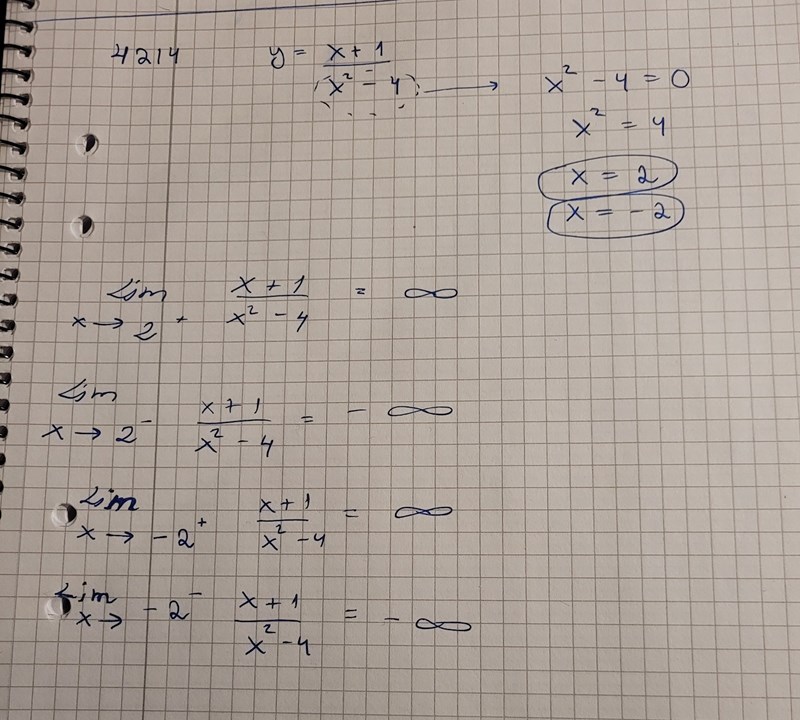 4214 y = x + 1 / x² - 4 → x² - 4 = 0
x² = 4
x = 2
x = -2
Lim x → 2⁺ x + 1 / x² - 4 = ∞
Lim x → 2⁻ x + 1 / x² - 4 = - ∞
Lim x → -2⁺ x + 1 / x² - 4 = ∞
Lim x → -2⁻ x + 1 / x² - 4 = - ∞